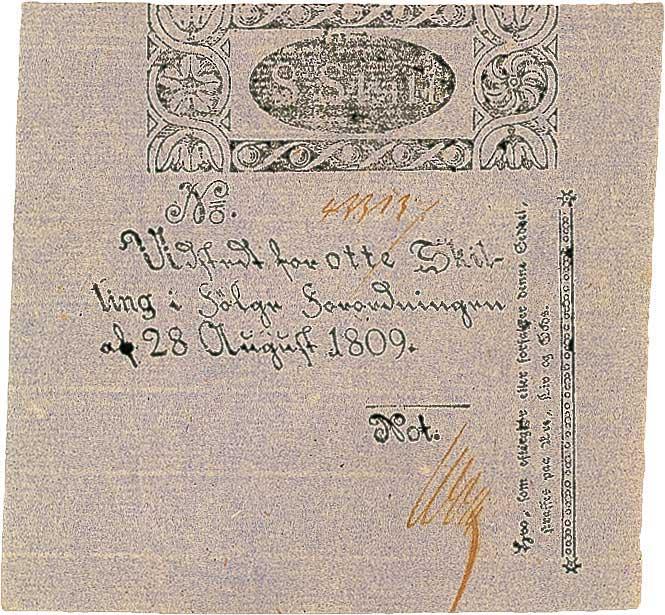 8 Skill
No. 42313.
Vidstedt for otte Skil-
ling i Følge Forordningen
af 28 August 1809.
Not.
Hvo, som eftergiør eller forfalsker denne Seddel,
straffes paa Ære, Liv og Gods.